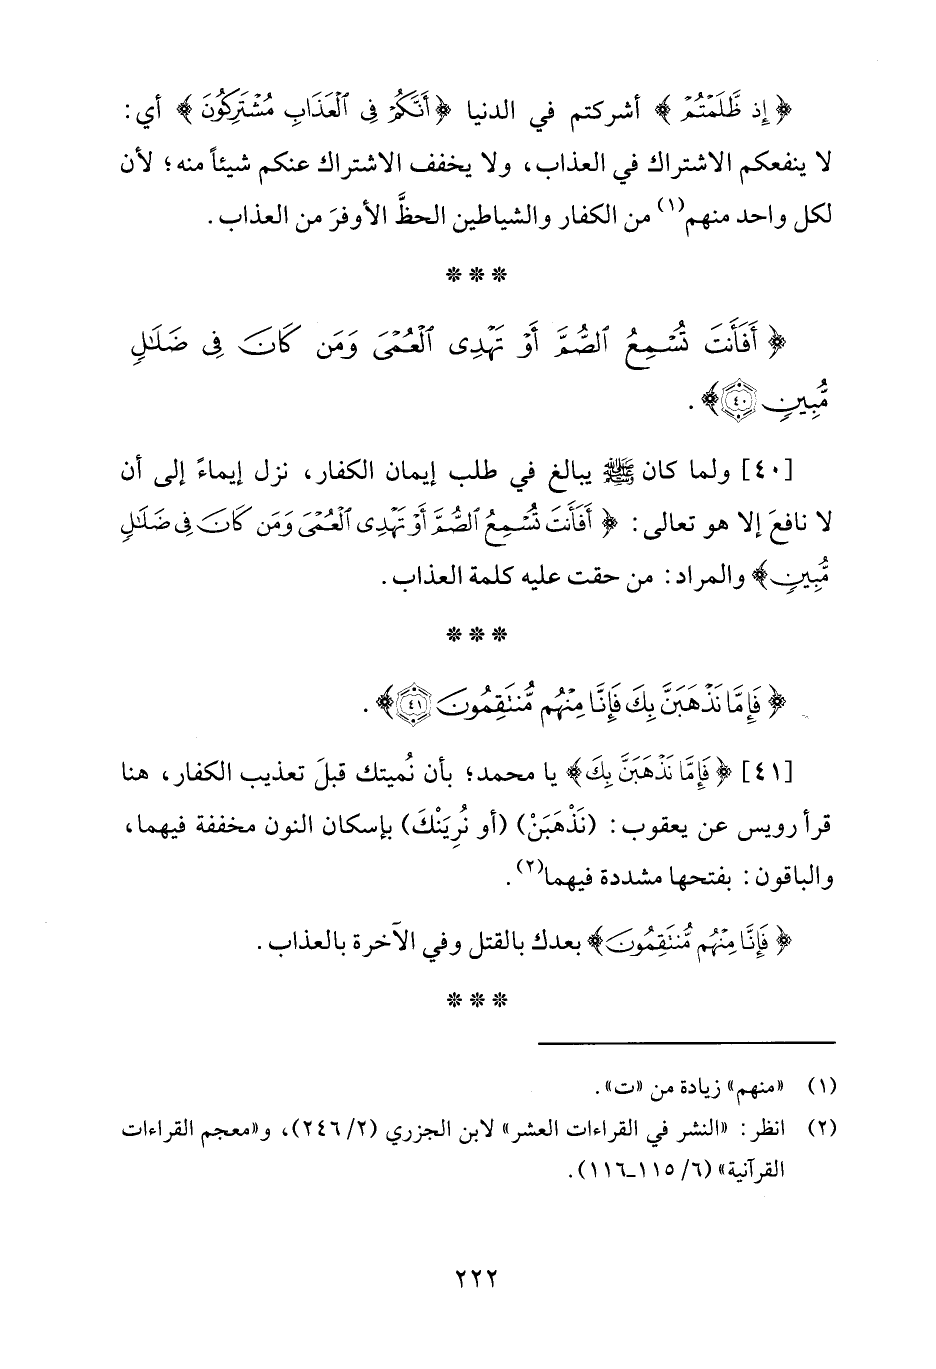 ﴿ إِذ ظَّلَمْتُمْ ﴾ أشركتم في الدنيا ﴿ أَنَّكُمْ فِى ٱلْعَذَابِ مُشْتَرِكُونَ ﴾ أي:
لا ينفعكم الاشتراك في العذاب، ولا يخفف الاشتراك عنكم شيئاً منه؛ لأن
لكل واحد منهم(١) من الكفار والشياطين الحظَّ الأوفرَ من العذاب.
* * *
﴿ أَفَأَنتَ تُسْمِعُ ٱلصُّمَّ أَوْ تَهْدِى ٱلْعُمْىَ وَمَن كَانَ فِى ضَلَـٰلٍ
مُّبِينٍ ٤٠ ﴾.
[٤٠] ولما كان ﷺ يبالغ في طلب إيمان الكفار، نزل إيماءً إلى أن
لا نافعَ إلا هو تعالى: ﴿ أَفَأَنتَ تُسْمِعُ ٱلصُّمَّ أَوْ تَهْدِى ٱلْعُمْىَ وَمَن كَانَ فِى ضَلَـٰلٍ
مُّبِينٍ ﴾ والمراد: من حقت عليه كلمة العذاب.
* * *
﴿ فَإِمَّا نَذْهَبَنَّ بِكَ فَإِنَّا مِنْهُم مُّنتَقِمُونَ ٤١ ﴾.
[٤١] ﴿ فَإِمَّا نَذْهَبَنَّ بِكَ ﴾ يا محمد؛ بأن نُميتك قبلَ تعذيب الكفار، هنا
قرأ رويس عن يعقوب: (نَذْهَبَنْ) (أو نُرِيَنْكَ) بإسكان النون مخففة فيهما،
والباقون: بفتحها مشددة فيهما(٢).
﴿ فَإِنَّا مِنْهُم مُّنتَقِمُونَ ﴾ بعدك بالقتل وفي الآخرة بالعذاب.
* * *
(١) «منهم» زيادة من «ت».
(٢) انظر: «النشر في القراءات العشر» لابن الجزري (٢/ ٢٤٦)، و«معجم القراءات
القرآنية» (٦/ ١١٥ـ١١٦).
٢٢٢